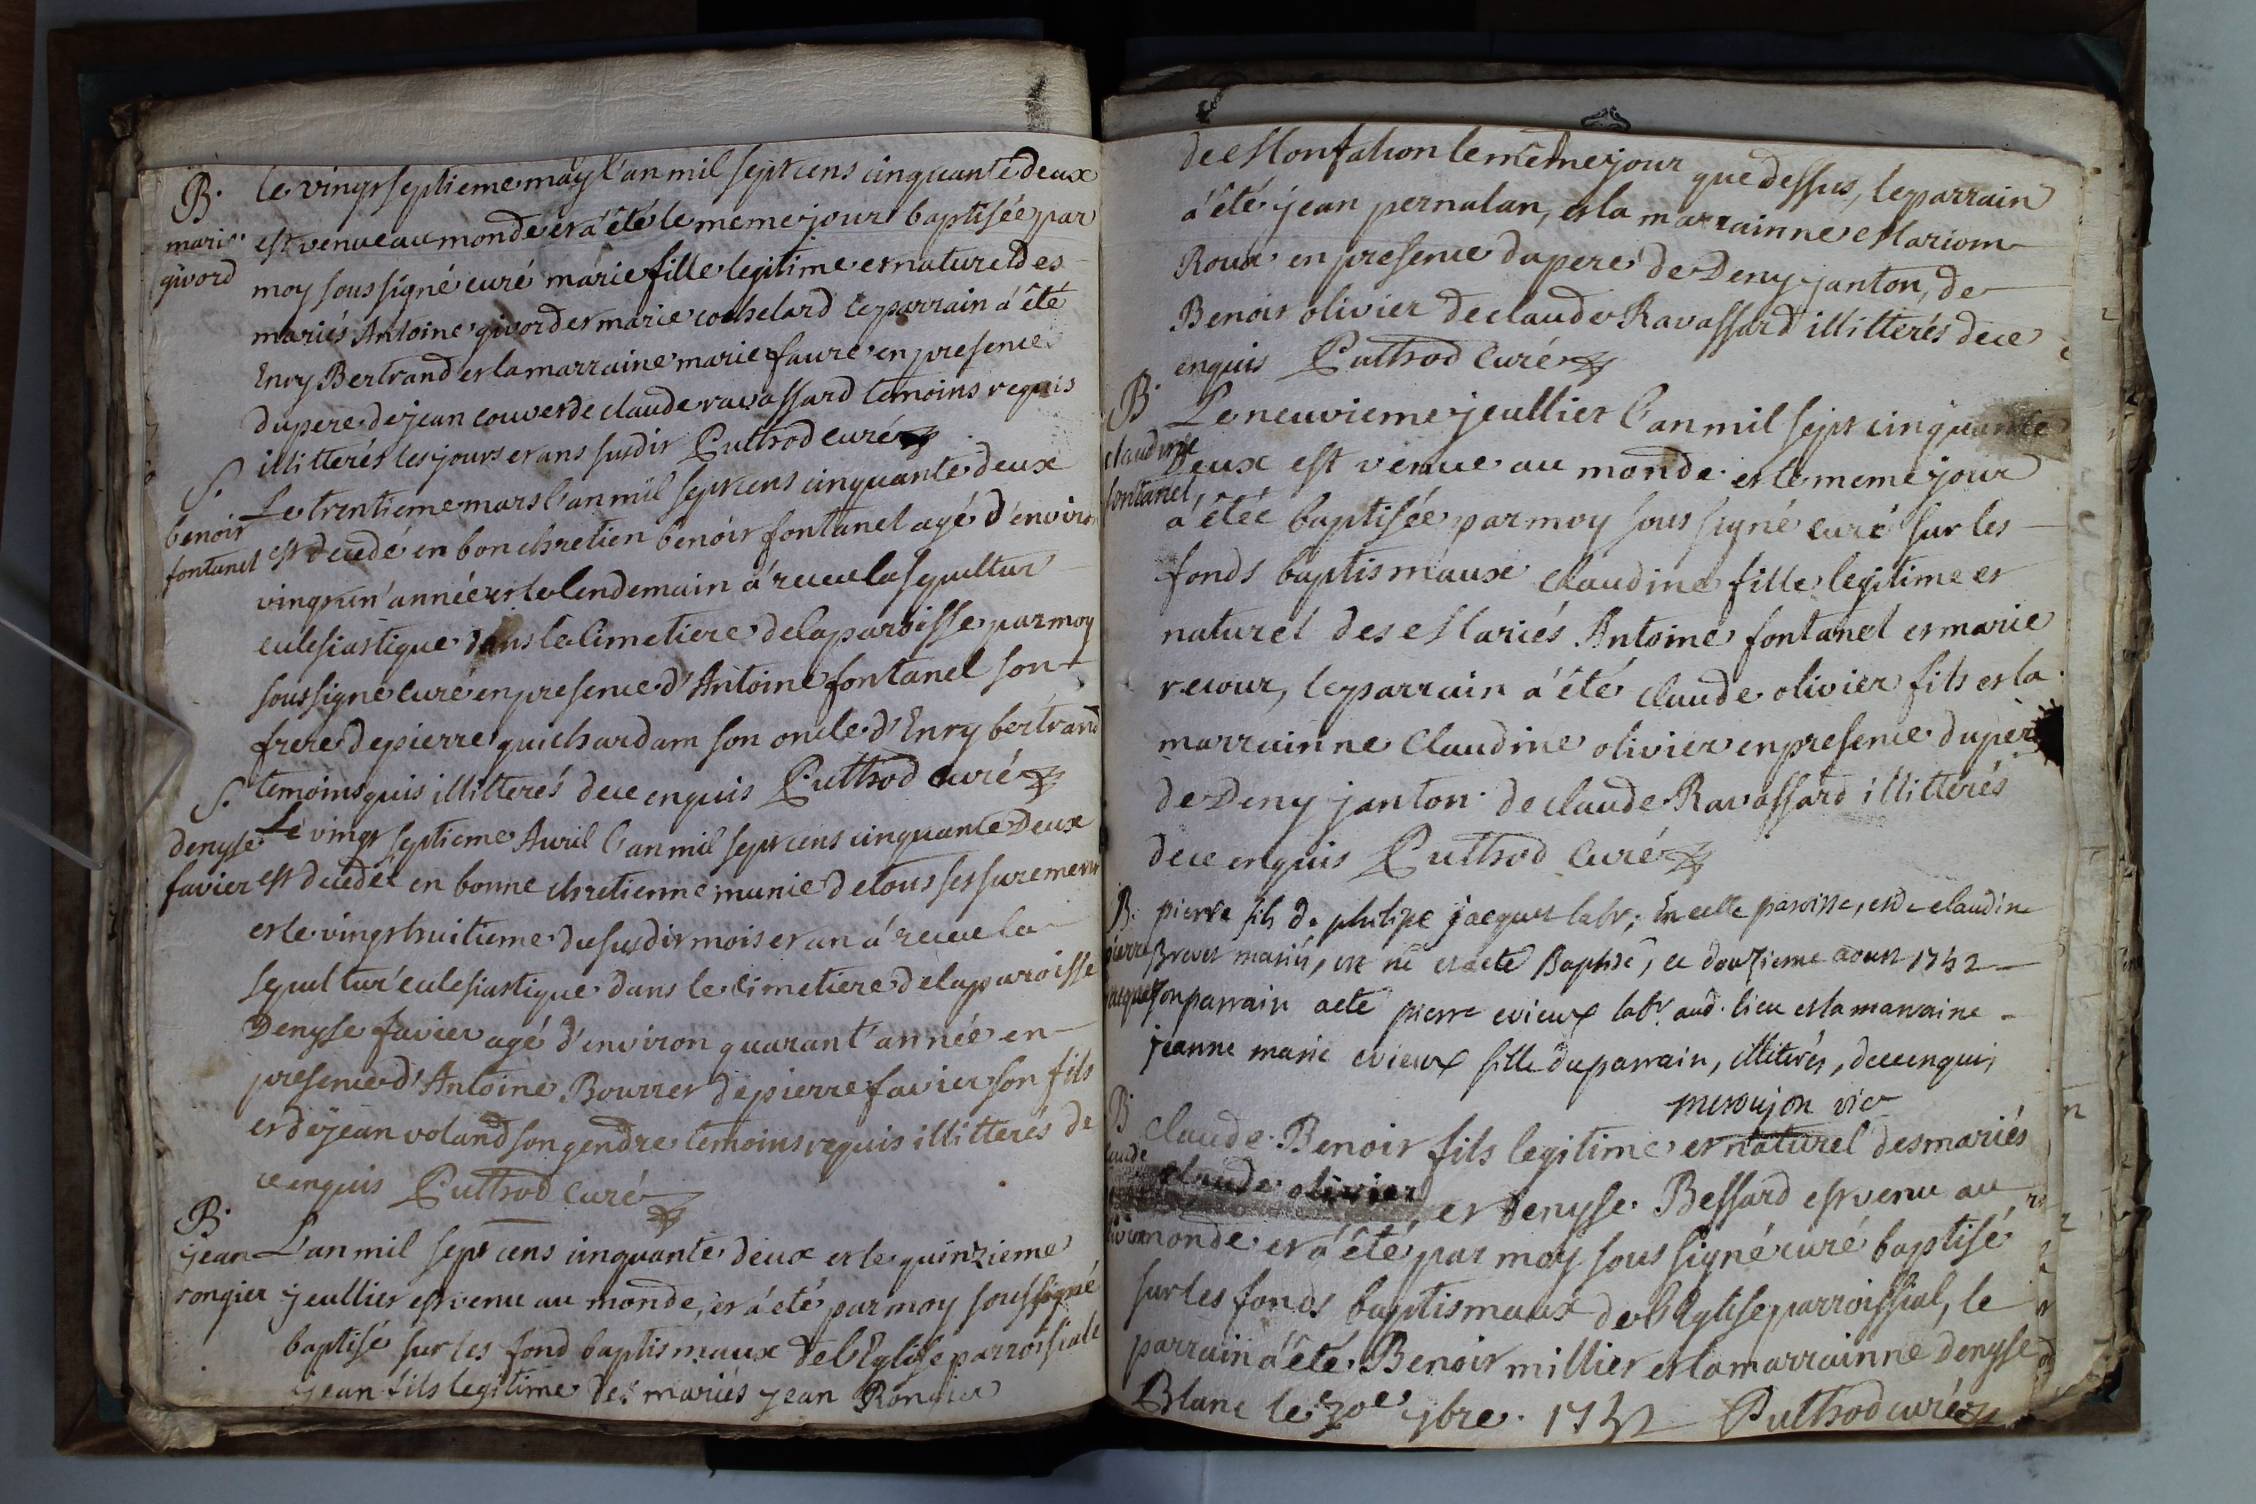 B.
marie
givord
le vingt septieme may l'an mil sept cens cinquante deux
est venue au monde et a été le meme jour baptisée par
moy sous signé curé marie fille legitime et naturel des
mariés Antoine givord et marie cochelard le parrain a été
Enry Bertrand et la marraine marie faure en presence
du pere de jean couver de claude ravassard temoins requis
illitterés les jours et ans susdit Puthod curé
S.
benoit
fontanel
Le trentieme mars l'an mil sept cens cinquante deux
est decedé en bon chretien benoit fontanel agé d'environ
vingt un' année et le lendemain a receu la sepultur
eclesiastique dans le cimetiere de la paroisse par moy
sous signé curé en presence d'Antoine fontanel son
frere de pierre guichardam son oncle d'Enry bertrand
temoins quis illitterés de ce enquis Puthod curé
S.
denyse
favier
Le vingt septieme Avril l'an mil sept cens cinquante Deux
est decedéé en bonne chretienne munie de tous ses suremens
et le vingt huitieme du susdit mois et an a receu la
sepultur' eclesiastique dans le cimetiere de la paroisse
Denyse favier agé d'environ quarant' année en
presence d'Antoine Bourrer de pierre favier son fils
et de jean voland son gendre temoins requis illitterés de
ce enquis Puthod Curé
B.
jean
rongier
L'an mil sept cens cinquante deux et le quinzieme
jeullier est venu au monde, et a été par moy sous signé
baptisé sur les fond baptismaux de l'Eglise parroissiale
jean fils legitime des mariés jean Rongier
de Monfation le même jour que dessus, le parrain
a été jean pernalan, et la marrainne Mariom
Roux en presence du pere de Deny janton, de
Benoit olivier de claude Ravassard illitterés de ce
enquis Puthod Curé
B.
claudine
fontanel,
Le neuvieme jeullier l'an mil sept cinquante
Deux est venue au monde et le meme jour
a étéé baptisée par moy sous signé curé sur les
fonds baptismaux Claudine fille legitime et
naturel des Mariés Antoine fontanel et marie
recour, le parrain a été claude olivier fils et la
marrainne Claudine olivier en presence du pere
de Deny janton de claude Ravassard illitterés
de ce enquis Puthod Curé
B.
pierre
jacquet
pierre fils de philipe jacquet labr; En cette paroisse, et de claudine
Brevet mariés, est né et a eté Baptisé, ce douzieme aoust 1752
son parrain a eté pierre evieux labr. aud. lieu et la marraine
jeanne marie evieux fille du parrain, illiterés, de ce enquis
vic
B.
claude
olivier
claude Benoit fils legitime et naturel des mariés
claude olivier et Denyse Bessard est venu au
monde et a été par moy sous signé curé baptisé
sur les fonds baptismaux de l'Eglise parroissial, le
parrain a été Benoit millier et la marrainne Denyse
Blanc le 30e 7bre 1752 Puthod curé